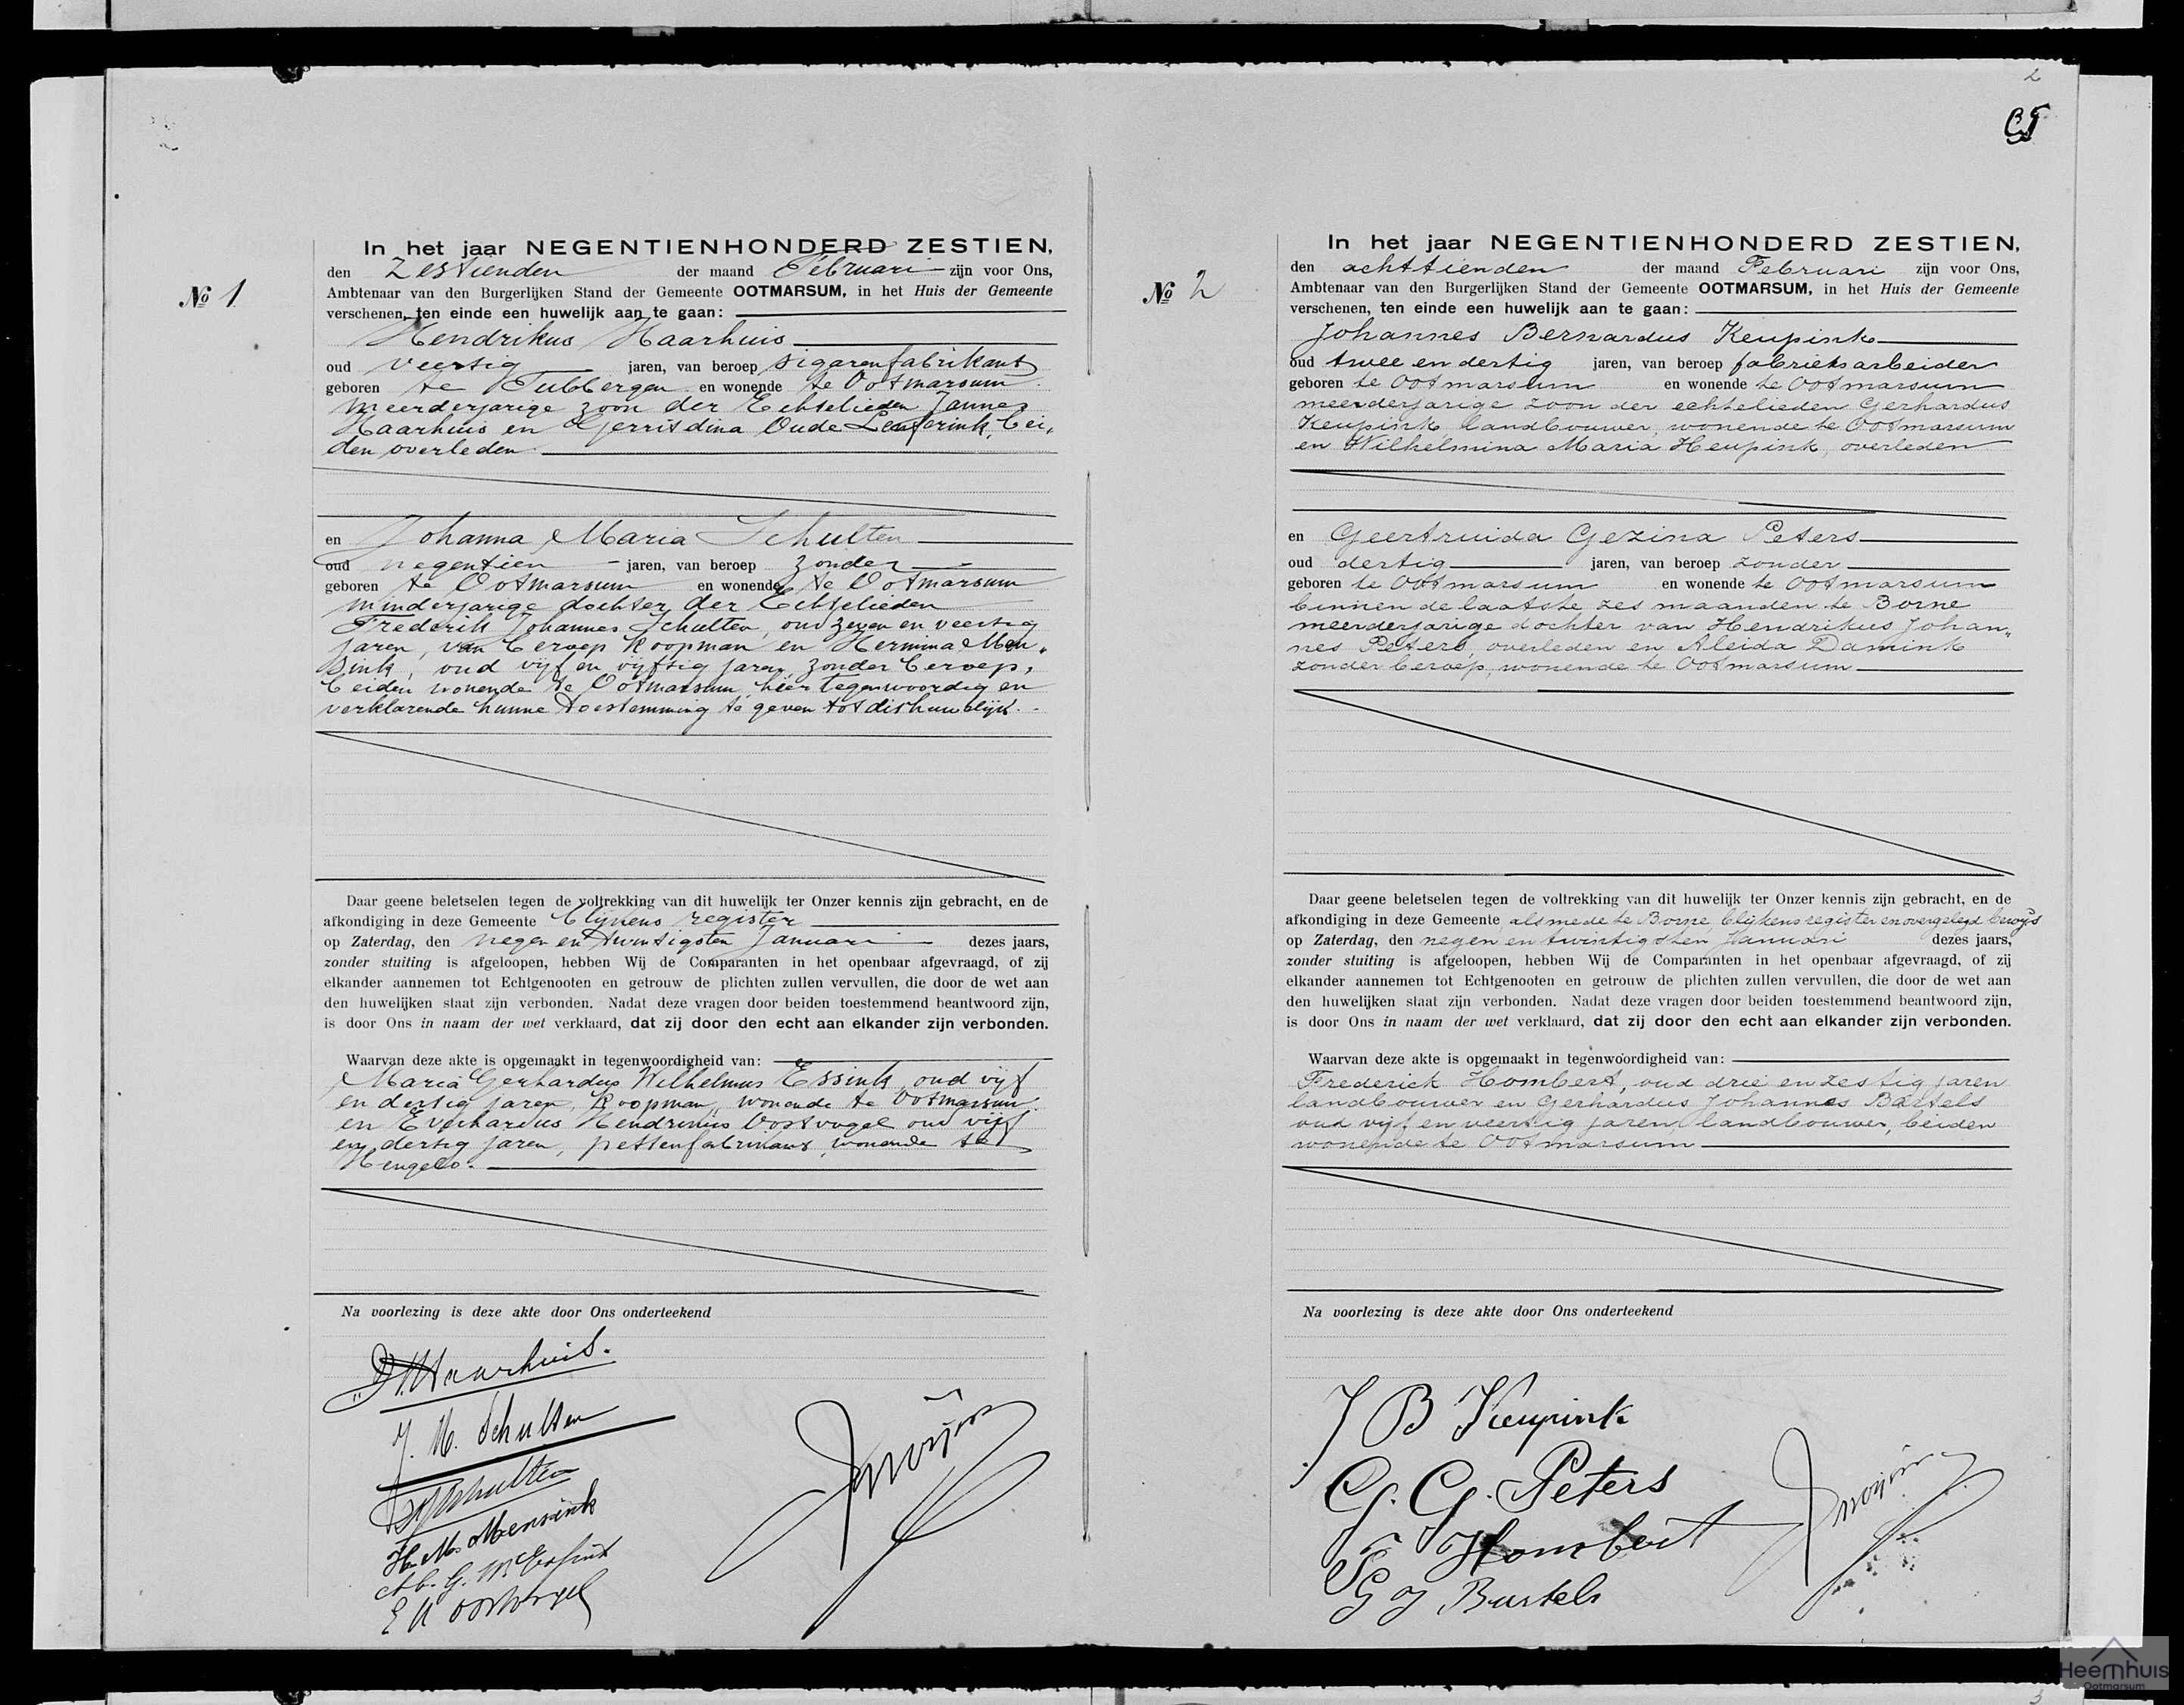 2
№ 1
In het jaar NEGENTIENHONDERD ZESTIEN,
den Zestienden der maand Februari zijn voor Ons,
Ambtenaar van den Burgerlijken Stand der Gemeente OOTMARSUM, in het Huis der Gemeente
verschenen, ten einde een huwelijk aan te gaan:
Hendrikus Haarhuis
oud veertig jaren, van beroep sigarenfabrikant
geboren te Tubbergen en wonende te Ootmarsum
meerderjarige zoon der Echtelieden Jannes
Haarhuis en Gerridina Oude Lenferink, bei„
den overleden.
en Johanna Maria Schulten
oud negentien jaren, van beroep zonder
geboren te Ootmarsum en wonende te Ootmarsum
minderjarige dochter der Echtelieden
Frederik Johannes Schulten, oud zeven en veertig
jaren, van beroep Koopman en Hermina Men„
sink, oud vijf en vijftig jaren, zonder beroep,
beiden wonende te Ootmarsum, hier tegenwoordig en
verklarende hunne toestemming te geven tot dit huwelijk.
Daar geene beletselen tegen de voltrekking van dit huwelijk ter Onzer kennis zijn gebracht, en de
afkondiging in deze Gemeente blijkens register
op Zaterdag, den negen en twintigsten Januari dezes jaars,
zonder stuiting is afgeloopen, hebben Wij de Comparanten in het openbaar afgevraagd, of zij
elkander aannemen tot Echtgenooten en getrouw de plichten zullen vervullen, die door de wet aan
den huwelijken staat zijn verbonden. Nadat deze vragen door beiden toestemmend beantwoord zijn,
is door Ons in naam der wet verklaard, dat zij door den echt aan elkander zijn verbonden.
Waarvan deze akte is opgemaakt in tegenwoordigheid van:
Maria Gerhardus Wilhelmus Essink, oud vijf
en dertig jaren, Koopman, wonende te Ootmarsum
en Everhardus Hendrikus Oostvogel oud vijf
en dertig jaren, pettenfabrikant, wonende te
Hengelo.
Na voorlezing is deze akte door Ons onderteekend
H. Haarhuis.
J. M. Schulten
F J Schulten
H. M. Mensink
M. G. W. Essink
E H Oostvogel
№ 2
In het jaar NEGENTIENHONDERD ZESTIEN,
den achttienden der maand Februari zijn voor Ons,
Ambtenaar van den Burgerlijken Stand der Gemeente OOTMARSUM, in het Huis der Gemeente
verschenen, ten einde een huwelijk aan te gaan:
Johannes Bernardus Keupink
oud twee en dertig jaren, van beroep fabrieksarbeider
geboren te Ootmarsum en wonende te Ootmarsum
meerderjarige zoon der echtelieden Gerhardus
Keupink landbouwer, wonende te Ootmarsum
en Wilhelmina Maria Heupink, overleden
en Geertruida Gezina Peters
oud dertig jaren, van beroep zonder
geboren te Ootmarsum en wonende te Ootmarsum
binnen de laatste zes maanden te Borne
meerderjarige dochter van Hendrikus Johan„
nes Peters, overleden en Aleida Damink
zonder beroep, wonende te Ootmarsum
Daar geene beletselen tegen de voltrekking van dit huwelijk ter Onzer kennis zijn gebracht, en de
afkondiging in deze Gemeente, alsmede te Borne, blijkens register en overgelegd bewijs
op Zaterdag, den negen en twintigsten Januari dezes jaars,
zonder stuiting is afgeloopen, hebben Wij de Comparanten in het openbaar afgevraagd, of zij
elkander aannemen tot Echtgenooten en getrouw de plichten zullen vervullen, die door de wet aan
den huwelijken staat zijn verbonden. Nadat deze vragen door beiden toestemmend beantwoord zijn,
is door Ons in naam der wet verklaard, dat zij door den echt aan elkander zijn verbonden.
Waarvan deze akte is opgemaakt in tegenwoordigheid van:
Frederick Hombert, oud drie en zestig jaren
landbouwer en Gerhardus Johannes Bartels
oud vijf en veertig jaren, landbouwer, beiden
wonende te Ootmarsum
Na voorlezing is deze akte door Ons onderteekend
J B Keupink
G. G. Peters
F Hombert
G J Bartels
Heemhuis
Ootmarsum
3